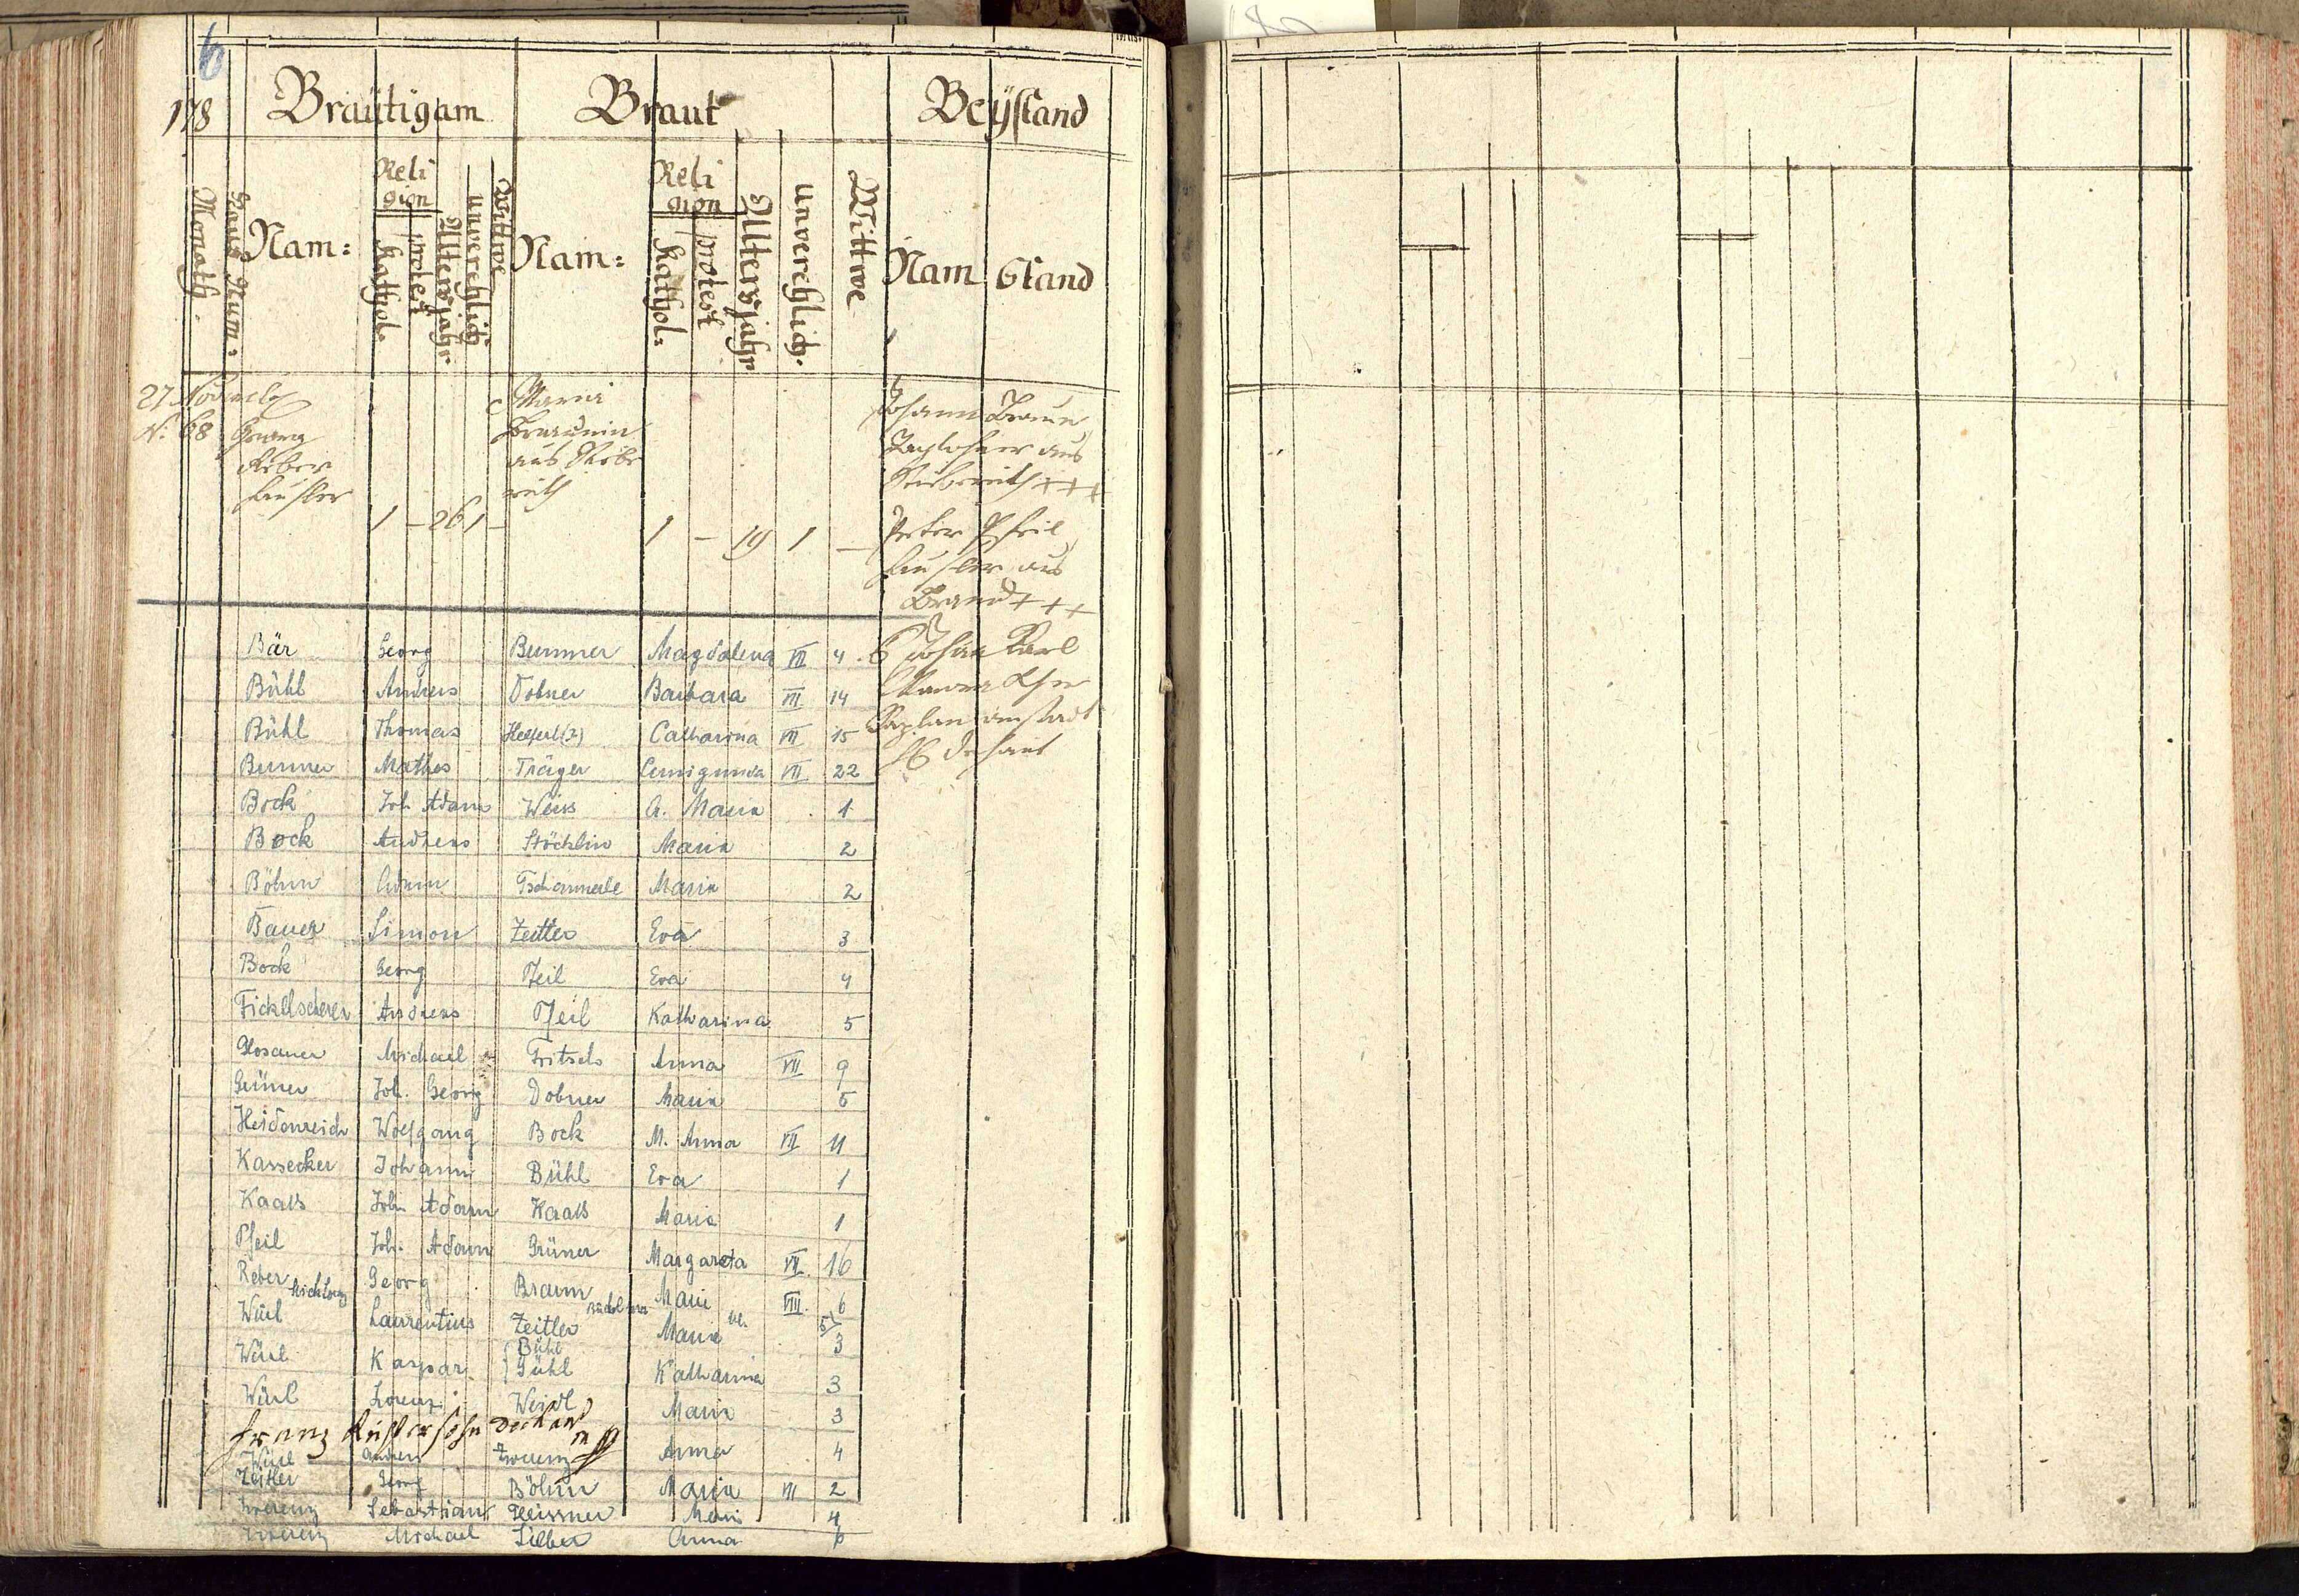 6
178 Bräutigam Braut Beÿstand
Monath Haus Num: Nam: Religion Kathol. protest Altersjahr unverehlich Wittwe Nam: Religion Kathol. protest Altersjahr unverehlich. Wittwe Nam Stand
27 November
N. 68 Georg
Reber
Häusler
1 – 26 1 –
Maria
Braunin
aus
1 – 19 1 –
Johann Braun
Taglohner aus
+++
Peter Pfeil
Häusler aus
Brand +++
Johan Karl
Kaplan
Bär Georg Brunner Magdalena VII 4
Bühl Andreas Dobner Barbara VII 14
Bühl Thomas Helfert (?) Catharina VII 15
Brunner Mathes Träger Cunigunda VII 22
Bock Joh Adam Weiss A. Maria 1
Bock Andreas Stöcklin Maria 2
Böhm Adam Tschammerle Maria 2
Bauer Simon Zeitler Eva 3
Bock Georg Pfeil Eva 4
Fickelscherer Andreas Pfeil Katharina 5
Glosauer Michael Fritsch Anna VII 9
Grüner Joh. Georg Dobner Maria 5
Heidenreich Wolfgang Bock M. Anna VII 11
Kassecker Johann Bühl Eva 1
Kaals Joh Adam Kaals Maria 1
Pfeil Joh. Adam Grüner Margareta VII. 16
Reber Georg Braun Marie VIII. 6
Würl Laurentius Zeitler Maria 3
Würl Kaspar Bühl Gühl Katharina 3
Würl Lorenz Weidl Maria 3
Franz
Würl Andreas Zwerenz Anna 4
Zeitler Georg Böhm Maria VII 2
Zwerenz Sebastian Heissner 4
Zwerenz Michael Silber Anna 6